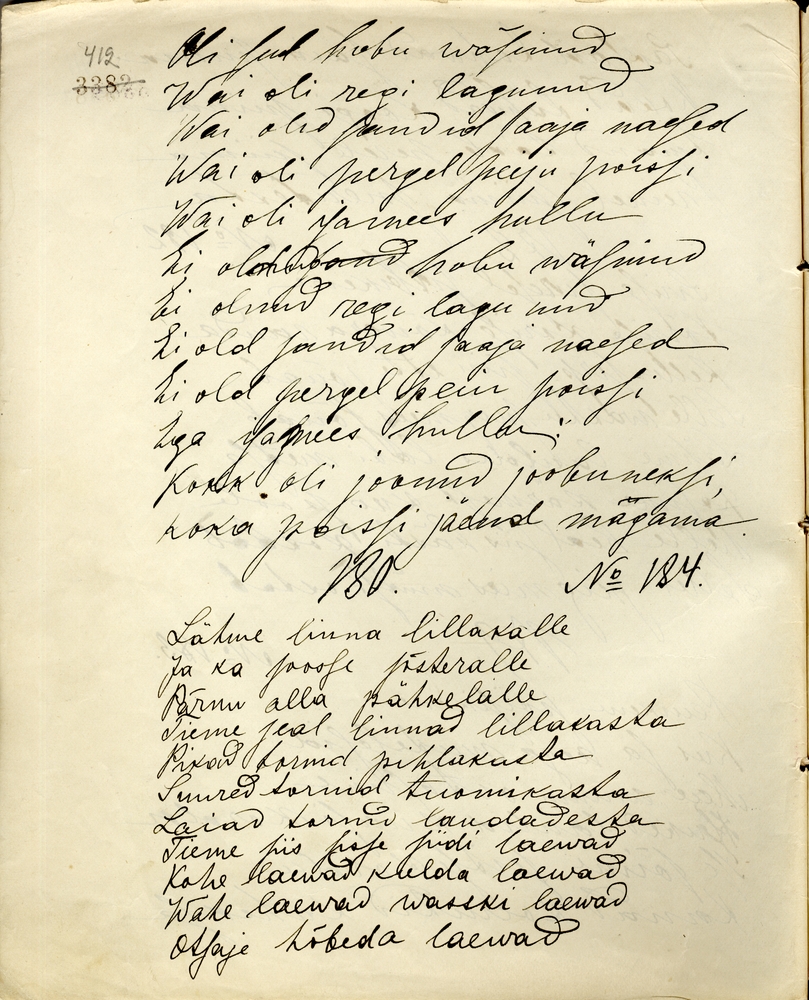 412
3382
Oli sul hobu wäsinud
Wai oli regi lagunud
Wai olid sandid saaja naesed
Wai oli pergel peiju poissi
Wai oli isamees hullu
Ei olnud hobu wäsinud
Ei olnud regi lagunud
Ei old sandid saaja naesed
Ei old pergel peiu poissi
Ega isamees hullu:
Kokk oli joonud joobuneksi,
Koka poissi jäänd mägama
180. No 184.
Lähme linna lillakalle
Ja ka soosse sõsteralle
Pärnu alla pähkelalle
Tieme seal linnad lillakasta
Pikad tornid pihlakasta
Suured tornid tuomikasta
Laiad tornid laudadesta
Tieme siis sisse siidi laewad
Kohe laewad kulda laewad
Wahe laewad wasski laewad
Otsaje hõbeda laewad